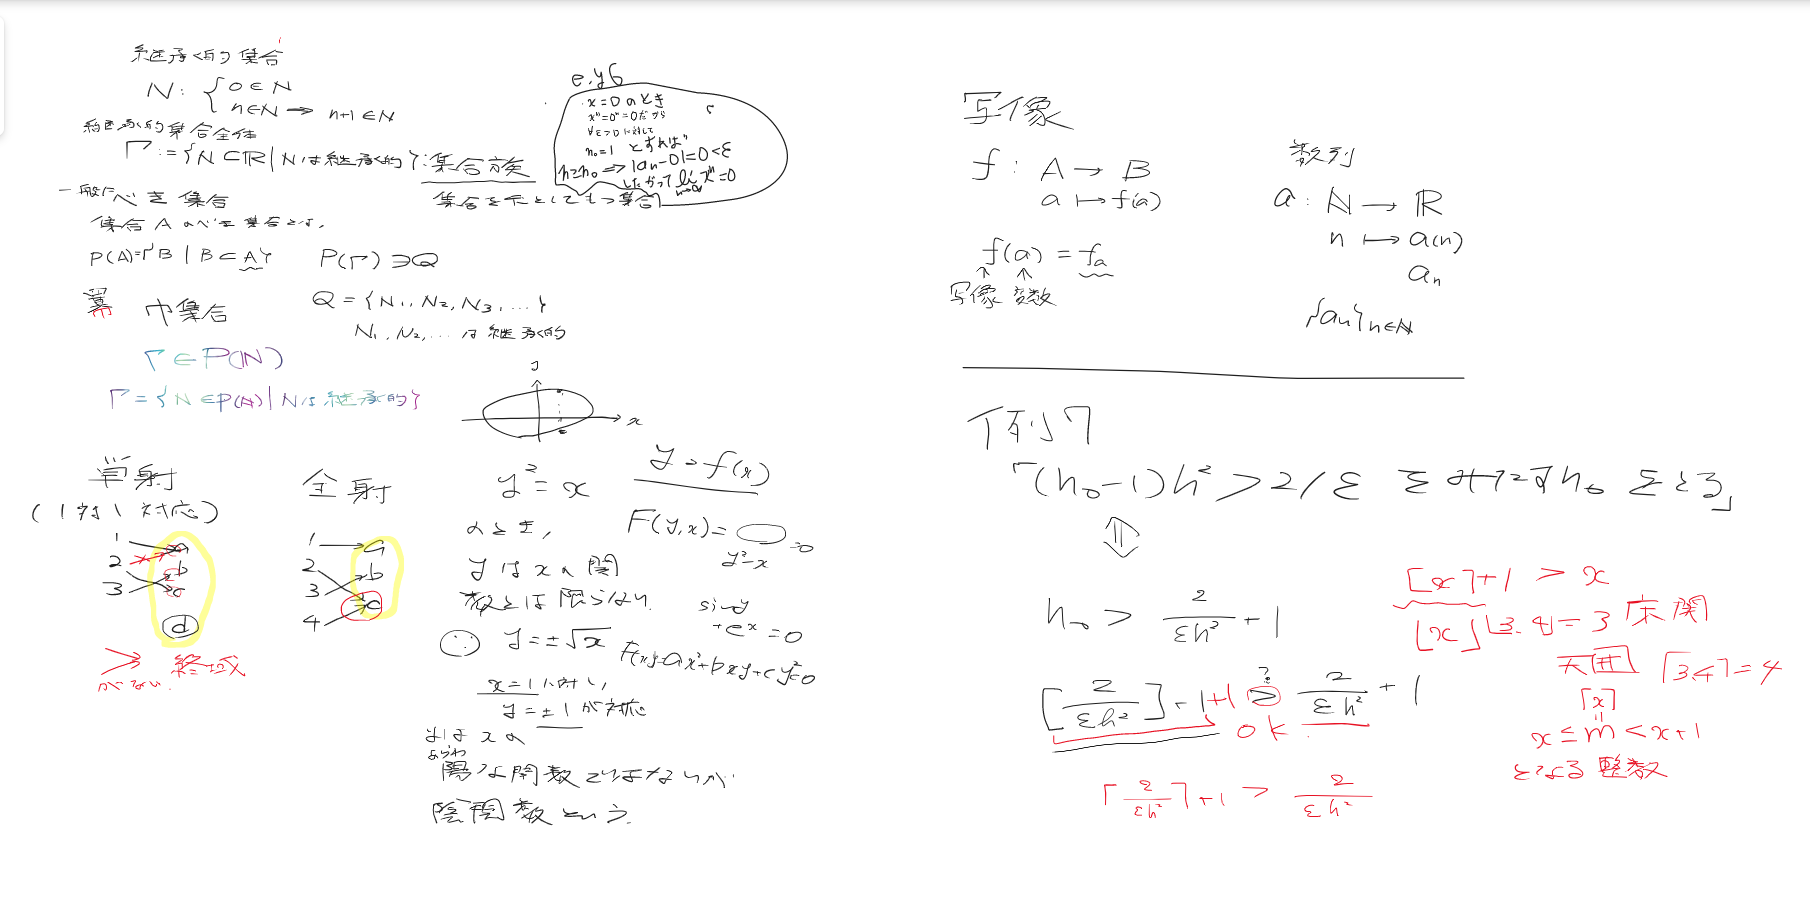 継承的集合
N: { 0∈N
n∈N → n+1∈N
継承的集合全体
Γ:={N⊂R|Nは継承的}:集合族
集合を元としてもつ集合
e.g 6
x=0のとき
xⁿ=0ⁿ=0だから
∀ε>0に対して
n₀=1 とすれば
n≥n₀ ⇒ |aₙ-0|=0<ε
したがって lim xⁿ=0
n→∞
一般に べき集合
集合Aのべき集合とは,
P(A)={B | B⊂A}
P(Γ)∋Q
冪 巾集合
Q={N₁,N₂,N₃,…}
N₁,N₂,…は継承的
Γ∈P(N)
Γ={N∈P(N)|Nは継承的}
y
x
単射
(1対1対応)
1 a
2 b
3 c
d
終域
がない.
全射
1 a
2 b
3 c
4
y²=x
のとき,
yはxの関
数とは限らない.
∵ y=±√x
x=1に対し,
y=±1が対応
yはxの
あらわ
陽な関数ではないが
陰関数という.
y=f(x)
F(y,x)= =0
y²-x
sin y
+eˣ=0
F(x,y)=ax²+bxy+cy²=0
写像
f: A → B
a ↦ f(a)
f(a)=fₐ
↑ ↑
写像 変数
数列
a: N → R
n ↦ a(n)
aₙ
{aₙ}n∈N
例7
「(n₀-1)h²>2/ε をみたすn₀をとる」
⇕
n₀ > 2/εh² + 1
[2/εh²]+1+1 > 2/εh² + 1
?
ok
⌈2/εh²⌉+1 > 2/εh²
[x]+1 > x
⌊x⌋ ⌊3.4⌋=3 床関
天井 ⌈3.4⌉=4
⌈x⌉
=
x≤m<x+1
となる整数